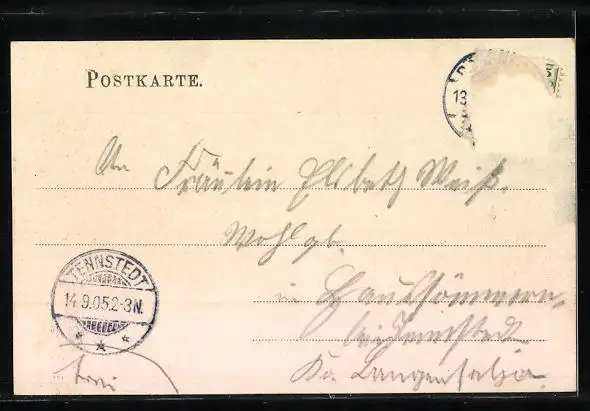 POSTKARTE.
13
An
Fräulein Elsbeth Weiß.
Wohlgb.
in Haussömmern
bei Tennstedt
Kr. Langensalza.
TENNSTEDT
14.9.05.2-3N.
frei